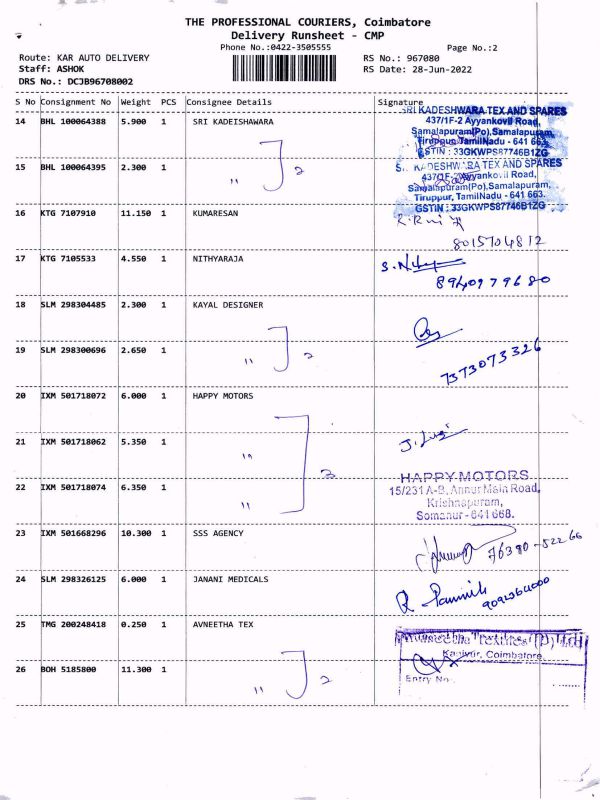 THE PROFESSIONAL COURIERS, Coimbatore
Delivery Runsheet - CMP
Phone No.:0422-3505555
Page No.:2
Route: KAR AUTO DELIVERY
RS No.: 967080
Staff: ASHOK
RS Date: 28-Jun-2022
DRS No.: DCJB96708002
S No Consignment No Weight PCS Consignee Details Signature
14 BHL 100064388 5.900 1 SRI KADEISHAWARA
SRI KADESHWARA TEX AND SPARES
437/1F-2 Ayyankovil Road,
Samalapuram(Po), Samalapuram,
Tiruppur, TamilNadu - 641 663.
GSTIN : 33GKWPS87746B1ZG
15 BHL 100064395 2.300 1 " 2
SRI KADESHWARA TEX AND SPARES
437/1F-2 Ayyankovil Road,
Samalapuram(Po), Samalapuram,
Tiruppur, TamilNadu - 641 663.
GSTIN : 33GKWPS87746B1ZG
16 KTG 7107910 11.150 1 KUMARESAN
8015704812
17 KTG 7105533 4.550 1 NITHYARAJA
8940979680
18 SLM 298304485 2.300 1 KAYAL DESIGNER
19 SLM 298300696 2.650 1 " 2
7373073326
20 IXM 501718072 6.000 1 HAPPY MOTORS
21 IXM 501718062 5.350 1 "
3
22 IXM 501718074 6.350 1 "
HAPPY MOTORS
15/231 A-B, Annur Main Road,
Krishnapuram,
Somanur - 641 668.
23 IXM 501668296 10.300 1 SSS AGENCY
76390-52266
24 SLM 298326125 6.000 1 JANANI MEDICALS
25 TMG 200248418 0.250 1 AVNEETHA TEX
Textiles (P) Ltd
Kaniyur, Coimbatore.
Entry No.
26 BOH 5185800 11.300 1 " 2